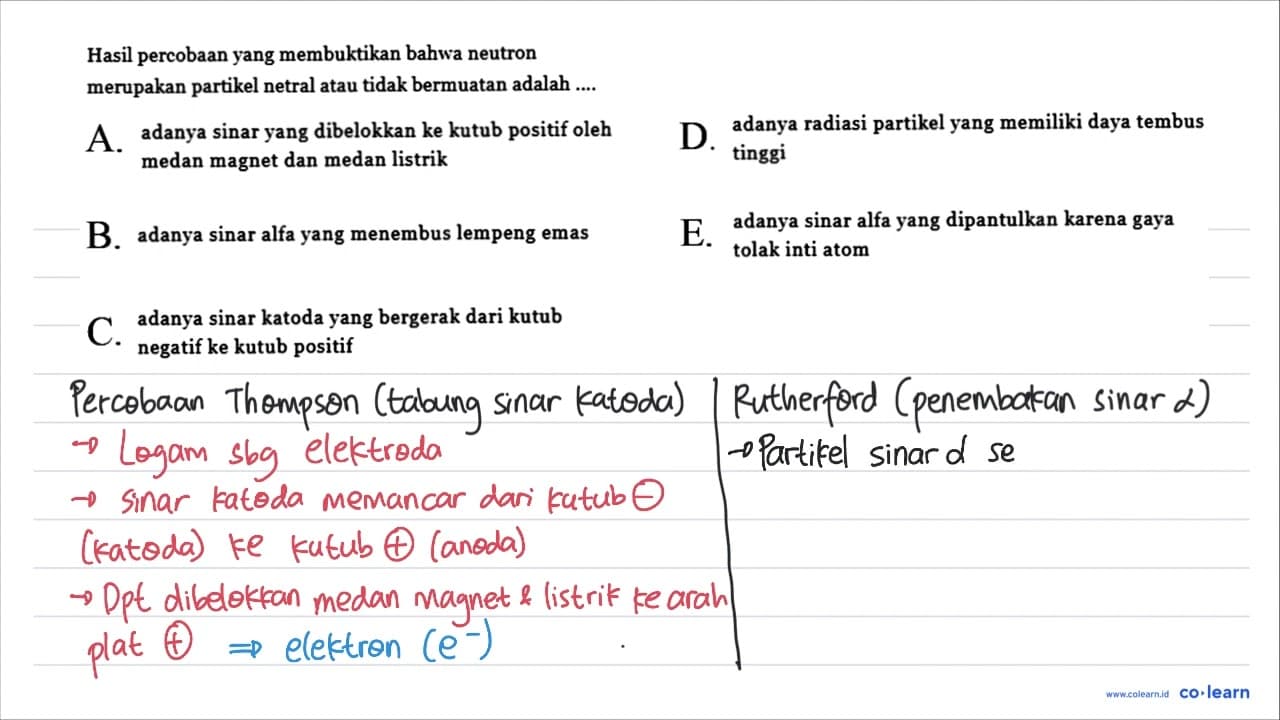 Hasil percobaan yang membuktikan bahwa neutron
merupakan partikel netral atau tidak bermuatan adalah ....
A. adanya sinar yang dibelokkan ke kutub positif oleh
medan magnet dan medan listrik
B. adanya sinar alfa yang menembus lempeng emas
C. adanya sinar katoda yang bergerak dari kutub
negatif ke kutub positif
D. adanya radiasi partikel yang memiliki daya tembus
tinggi
E. adanya sinar alfa yang dipantulkan karena gaya
tolak inti atom
Percobaan Thompson (tabung sinar katoda)
→ Logam sbg elektroda
→ sinar katoda memancar dari kutub ⊖
(katoda) ke kutub ⊕ (anoda)
→ Dpt dibelokkan medan magnet & listrik ke arah
plat ⊕ ⇒ elektron (e⁻)
Rutherford (penembakan sinar α)
→ Partikel sinar α se
www.colearn.id co·learn